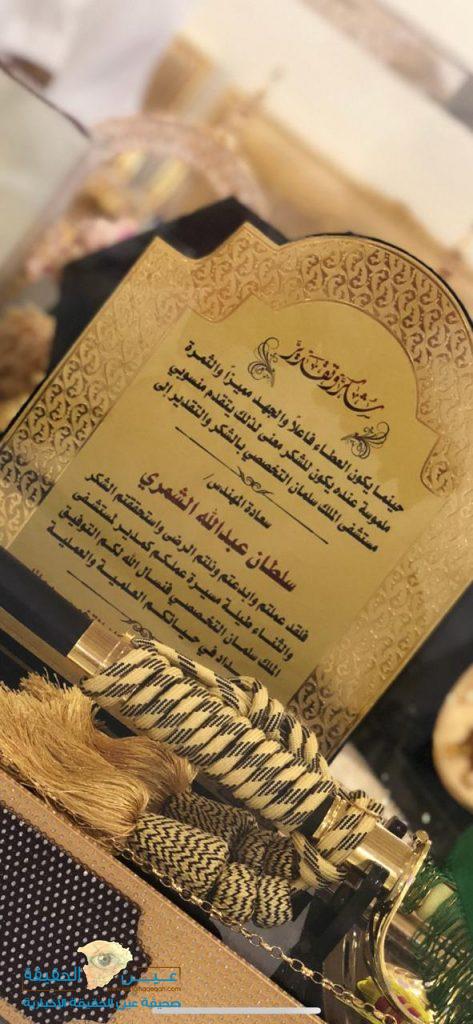 شكر وتقدير
حينما يكون العطاء فاعلاً والجهد مميزاً والثمرة
ملموسة عندها يكون للشكر معنى لذلك يتقدم منسوبي
مستشفى الملك سلمان التخصصي بالشكر والتقدير إلى
سعادة المهندس/
سلطان عبدالله الشمري
فلقد عملتم وابدعتم ونلتم الرضى واستحققتم الشكر
والثناء طيلة مسيرة عملكم كمدير لمستشفى
الملك سلمان التخصصي فنسأل الله لكم التوفيق
ـداد في حياتكم العلمية والعملية
عين الحقيقة
صحيفة عين الحقيقة الإخبارية